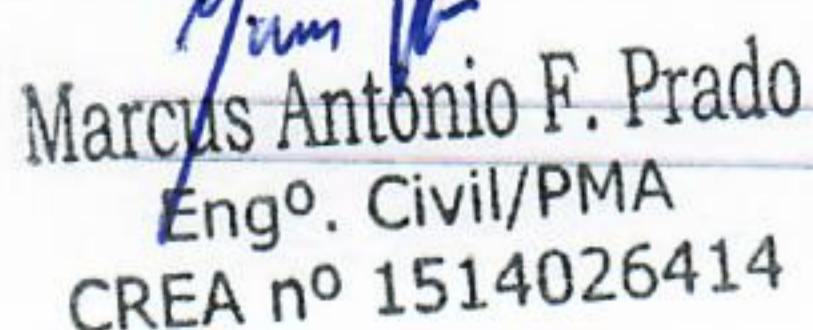 Marcus Antônio F. Prado
Engº. Civil/PMA
CREA nº 1514026414